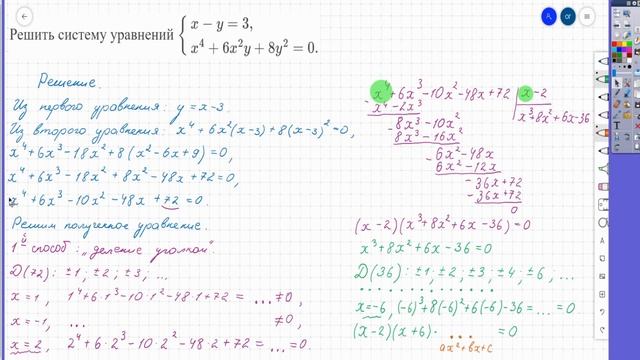 Решить систему уравнений { x − y = 3,
x⁴ + 6x²y + 8y² = 0.
Решение.
Из первого уравнения: y = x-3.
Из второго уравнения: x⁴ + 6x²(x-3) + 8(x-3)² = 0,
x⁴ + 6x³ - 18x² + 8(x² - 6x + 9) = 0,
x⁴ + 6x³ - 18x² + 8x² - 48x + 72 = 0,
x⁴ + 6x³ - 10x² - 48x + 72 = 0.
Решим полученное уравнение.
1й способ: „деление уголком".
D(72): ±1; ±2; ±3; ...
x=1, 1⁴+6·1³-10·1²-48·1+72 = ... ≠0,
x=-1, ... ≠0,
x=2, 2⁴+6·2³-10·2²-48·2+72 = ... =0.
x⁴+6x³-10x²-48x+72 | x-2
- x⁴-2x³ x³+8x²+6x-36
8x³-10x²
- 8x³-16x²
6x²-48x
- 6x²-12x
-36x+72
- -36x+72
0
(x-2)(x³+8x²+6x-36)=0
x³+8x²+6x-36=0
D(36): ±1; ±2; ±3; ±4; ±6; ...
x=-6, (-6)³+8(-6)²+6(-6)-36=...=0
(x-2)(x+6)· ... =0
ax²+bx+c